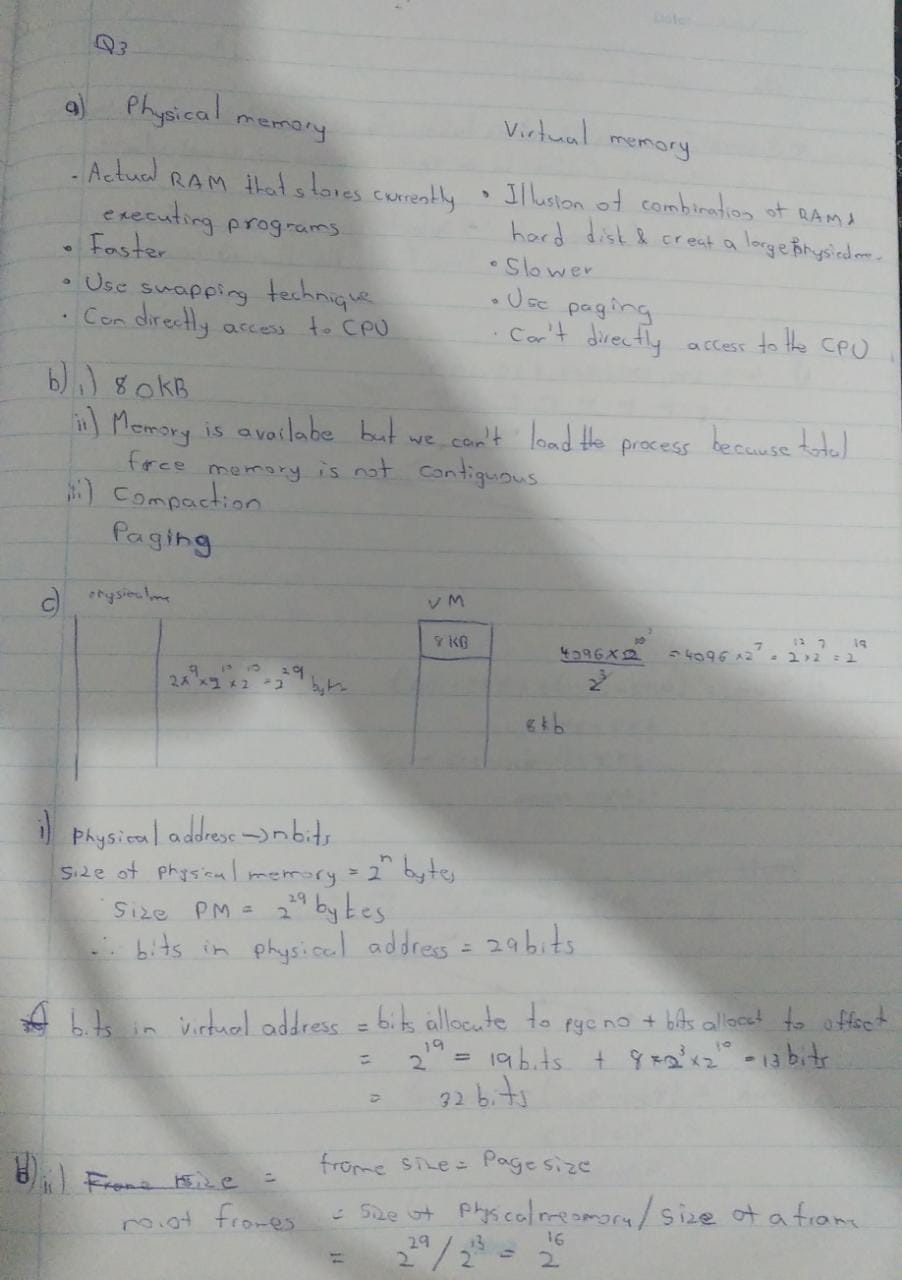 Q3
a) Physical memory
Virtual memory
- Actual RAM that stores currently
executing programs
• Faster
• Use swapping technique
• Can directly access to CPU
• Illusion of combination of RAM &
hard disk & creat a large
• Slower
• Use paging
• Can't directly access to the CPU
b) i) 80KB
ii) Memory is availabe but we can't load the process because total
free memory is not contiguous
iii) Compaction
Paging
c)
VM
8 KB
= 4096 × 2^7 = 2^12 × 2^7 = 2^19
2^3
8kb
i) Physical address → n bits
Size of physical memory = 2^n bytes
Size PM = 2^29 bytes
∴ bits in physical address = 29 bits
bits in virtual address = bits allocate to + bits to offset
= 2^19 = 19 bits + = 13 bits
= 32 bits
ii) = frame size = Page size
no. of frames = Size of / size of a frame
= 2^29 / 2^13 = 2^16